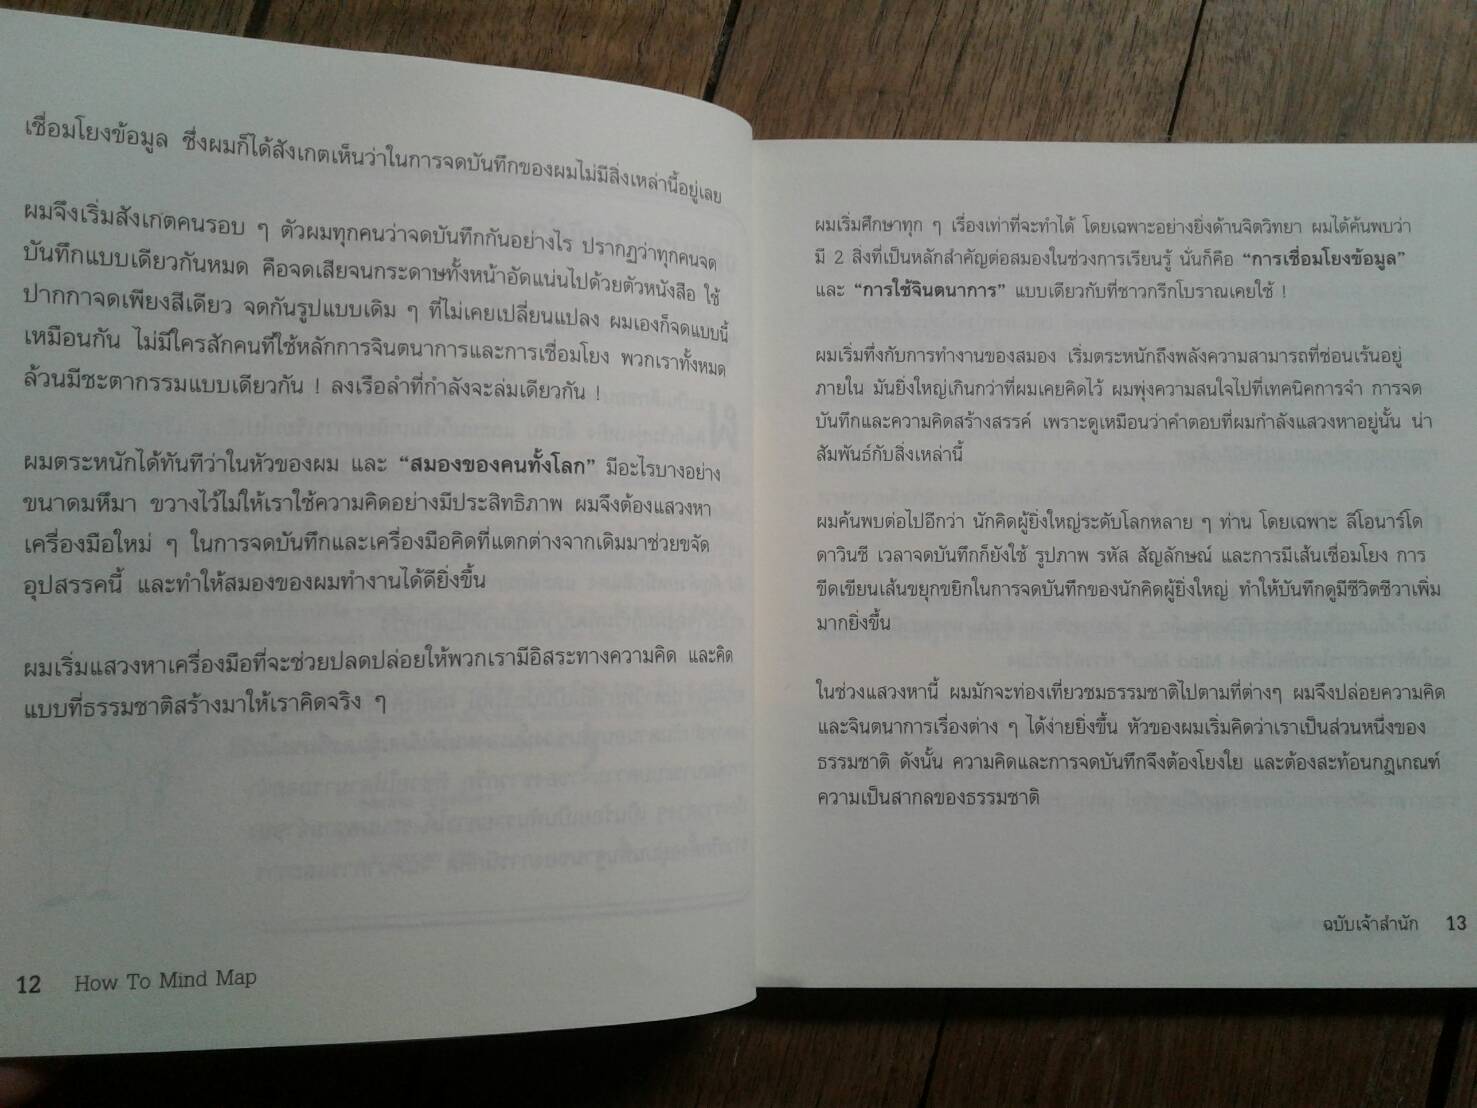 เชื่อมโยงข้อมูล ซึ่งผมก็ได้สังเกตเห็นว่าในการจดบันทึกของผมไม่มีสิ่งเหล่านี้อยู่เลย
ผมจึงเริ่มสังเกตคนรอบ ๆ ตัวผมทุกคนว่าจดบันทึกกันอย่างไร ปรากฏว่าทุกคนจด
บันทึกแบบเดียวกันหมด คือจดเสียจนกระดาษทั้งหน้าอัดแน่นไปด้วยตัวหนังสือ ใช้
ปากกาจดเพียงสีเดียว จดกันรูปแบบเดิม ๆ ที่ไม่เคยเปลี่ยนแปลง ผมเองก็จดแบบนี้
เหมือนกัน ไม่มีใครสักคนที่ใช้หลักการจินตนาการและการเชื่อมโยง พวกเราทั้งหมด
ล้วนมีชะตากรรมแบบเดียวกัน ! ลงเรือลำที่กำลังจะล่มเดียวกัน !
ผมตระหนักได้ทันทีว่าในหัวของผม และ “สมองของคนทั้งโลก” มีอะไรบางอย่าง
ขนาดมหึมา ขวางไว้ไม่ให้เราใช้ความคิดอย่างมีประสิทธิภาพ ผมจึงต้องแสวงหา
เครื่องมือใหม่ ๆ ในการจดบันทึกและเครื่องมือคิดที่แตกต่างจากเดิมมาช่วยขจัด
อุปสรรคนี้ และทำให้สมองของผมทำงานได้ดียิ่งขึ้น
ผมเริ่มแสวงหาเครื่องมือที่จะช่วยปลดปล่อยให้พวกเรามีอิสระทางความคิด และคิด
แบบที่ธรรมชาติสร้างมาให้เราคิดจริง ๆ
12 How To Mind Map
ผมเริ่มศึกษาทุก ๆ เรื่องเท่าที่จะทำได้ โดยเฉพาะอย่างยิ่งด้านจิตวิทยา ผมได้ค้นพบว่า
มี 2 สิ่งที่เป็นหลักสำคัญต่อสมองในช่วงการเรียนรู้ นั่นก็คือ “การเชื่อมโยงข้อมูล”
และ “การใช้จินตนาการ” แบบเดียวกับที่ชาวกรีกโบราณเคยใช้ !
ผมเริ่มทึ่งกับการทำงานของสมอง เริ่มตระหนักถึงพลังความสามารถที่ซ่อนเร้นอยู่
ภายใน มันยิ่งใหญ่เกินกว่าที่ผมเคยคิดไว้ ผมพุ่งความสนใจไปที่เทคนิคการจำ การจด
บันทึกและความคิดสร้างสรรค์ เพราะดูเหมือนว่าคำตอบที่ผมกำลังแสวงหาอยู่นั้น น่า
สัมพันธ์กับสิ่งเหล่านี้
ผมค้นพบต่อไปอีกว่า นักคิดผู้ยิ่งใหญ่ระดับโลกหลาย ๆ ท่าน โดยเฉพาะ ลีโอนาร์โด
ดาวินชี เวลาจดบันทึกก็ยังใช้ รูปภาพ รหัส สัญลักษณ์ และการมีเส้นเชื่อมโยง การ
ขีดเขียนเส้นขยุกขยิกในการจดบันทึกของนักคิดผู้ยิ่งใหญ่ ทำให้บันทึกดูมีชีวิตชีวาเพิ่ม
มากยิ่งขึ้น
ในช่วงแสวงหานี้ ผมมักจะท่องเที่ยวชมธรรมชาติไปตามที่ต่างๆ ผมจึงปล่อยความคิด
และจินตนาการเรื่องต่าง ๆ ได้ง่ายยิ่งขึ้น หัวของผมเริ่มคิดว่าเราเป็นส่วนหนึ่งของ
ธรรมชาติ ดังนั้น ความคิดและการจดบันทึกจึงต้องโยงใย และต้องสะท้อนกฎเกณฑ์
ความเป็นสากลของธรรมชาติ
ฉบับเจ้าสำนัก 13